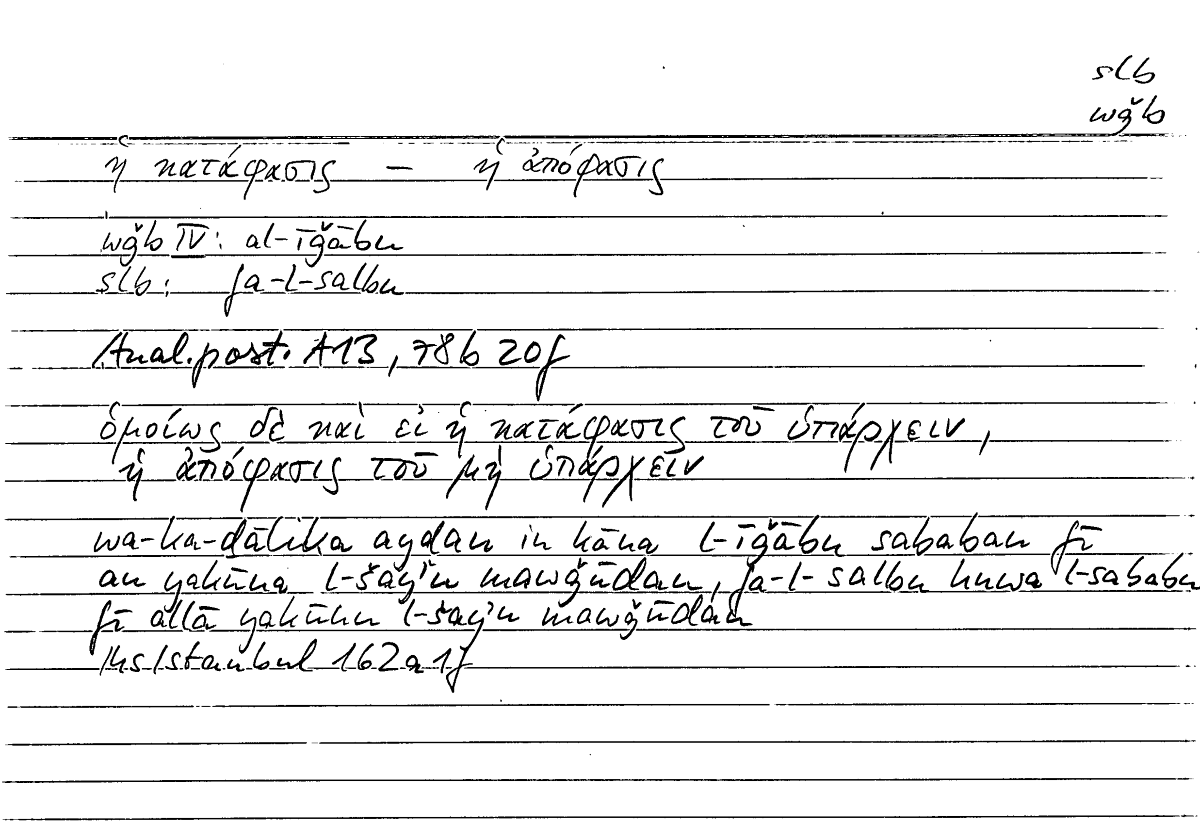 slb
wǧb
ἡ κατάφασις — ἡ ἀπόφασις
wǧb IV: al-īǧābu
slb: fa-l-salbu
Anal. post. A13, 78b 20f
ὁμοίως δὲ καὶ εἰ ἡ κατάφασις τοῦ ὑπάρχειν,
ἡ ἀπόφασις τοῦ μὴ ὑπάρχειν
wa-ka-ḏālika ayḍan in kāna l-īǧābu sababan fī
an yakūna l-šayʾu mawǧūdan, fa-l-salbu huwa l-sababu
fī allā yakūnu l-šayʾu mawǧūdan
Hs Istanbul 162a 1f